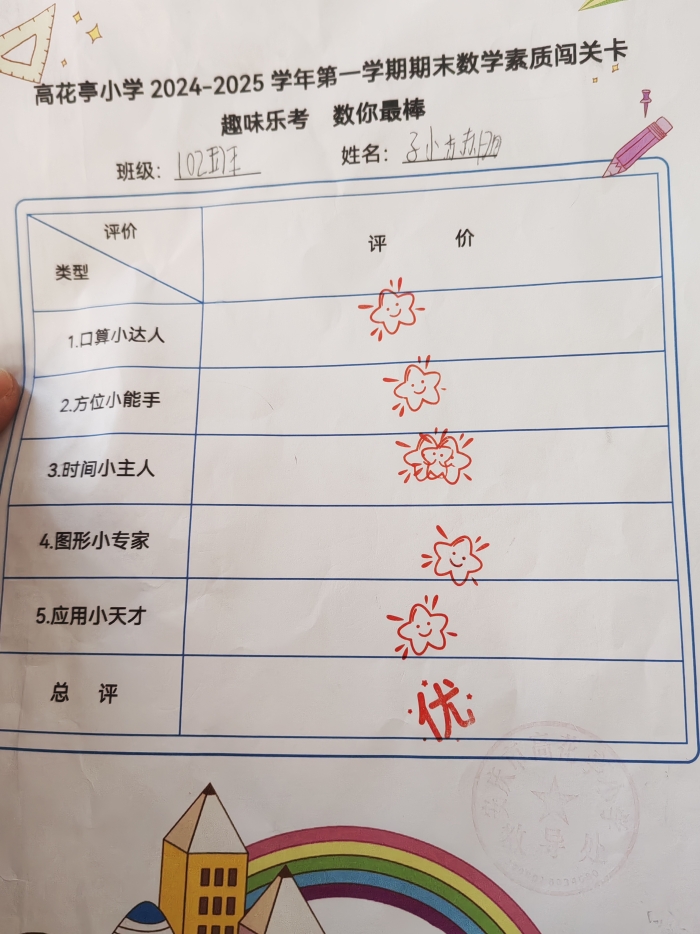 高花亭小学 2024-2025 学年第一学期期末数学素质闯关卡
趣味乐考 数你最棒
班级: 102班 姓名:
评价
类型
评 价
1.口算小达人
2.方位小能手
3.时间小主人
4.图形小专家
5.应用小天才
总 评
优
教导处